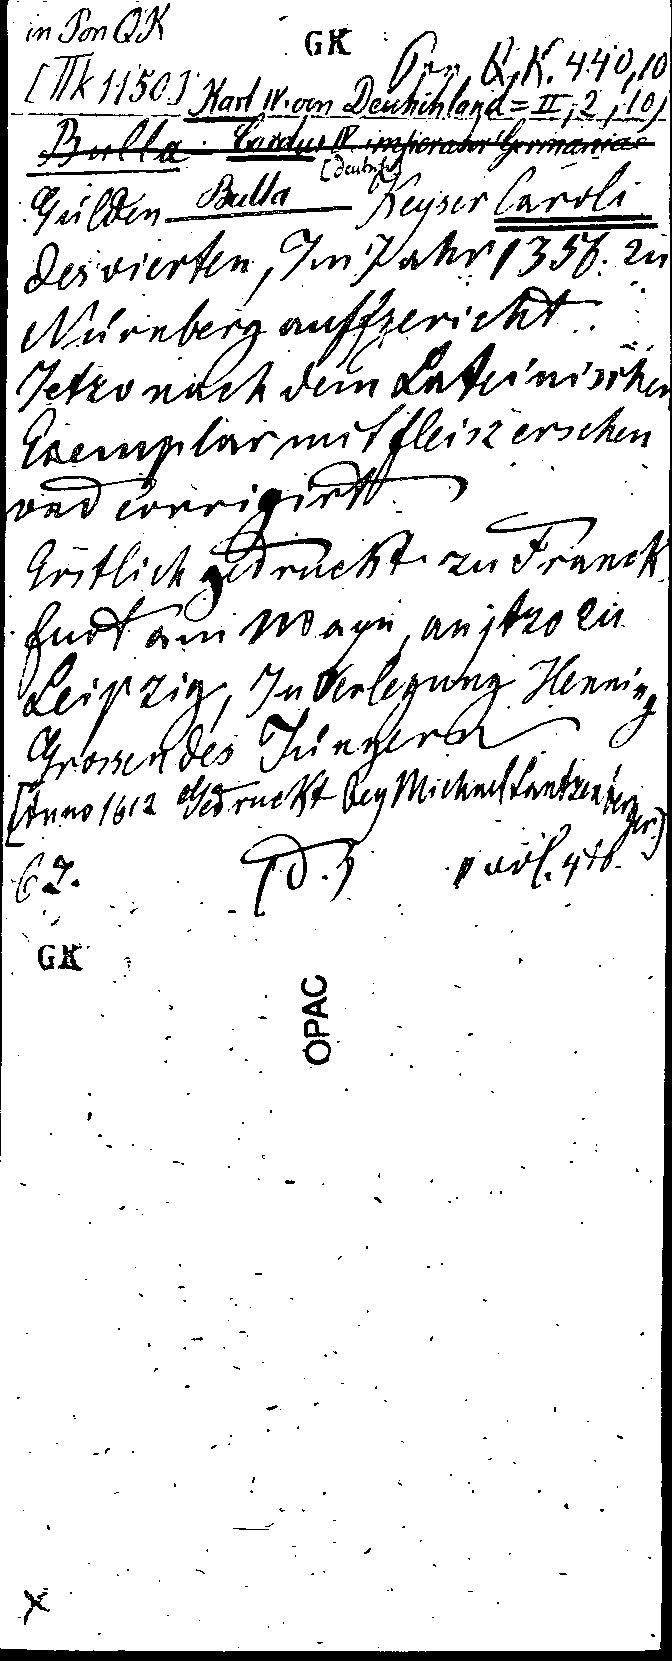 in Pon QK
GK
Pon. Q.K. 440,10
[IIk 1150]
Karl IV. von Deutschland = II, 2, 10)
Bulla. Carolus IV imperator Germaniae
[deutsch]
Gülden Bulla Keyser Caroli
des vierten, Im Jahr 1356. zu
Nürnberg auffgericht.
Jetzo nach dem Lateinischen
Exemplar mit fleisz ersehen
vnd corrigirt
Erstlich gedruckt zu Franck
furt am Mayn, an jtzo zu
Leipzig, In Verlegung Henning
Grossen des Jüngern
[Anno 1612 Gedruckt bey Michael Lantzenberger.]
62.
GK
OPAC
x